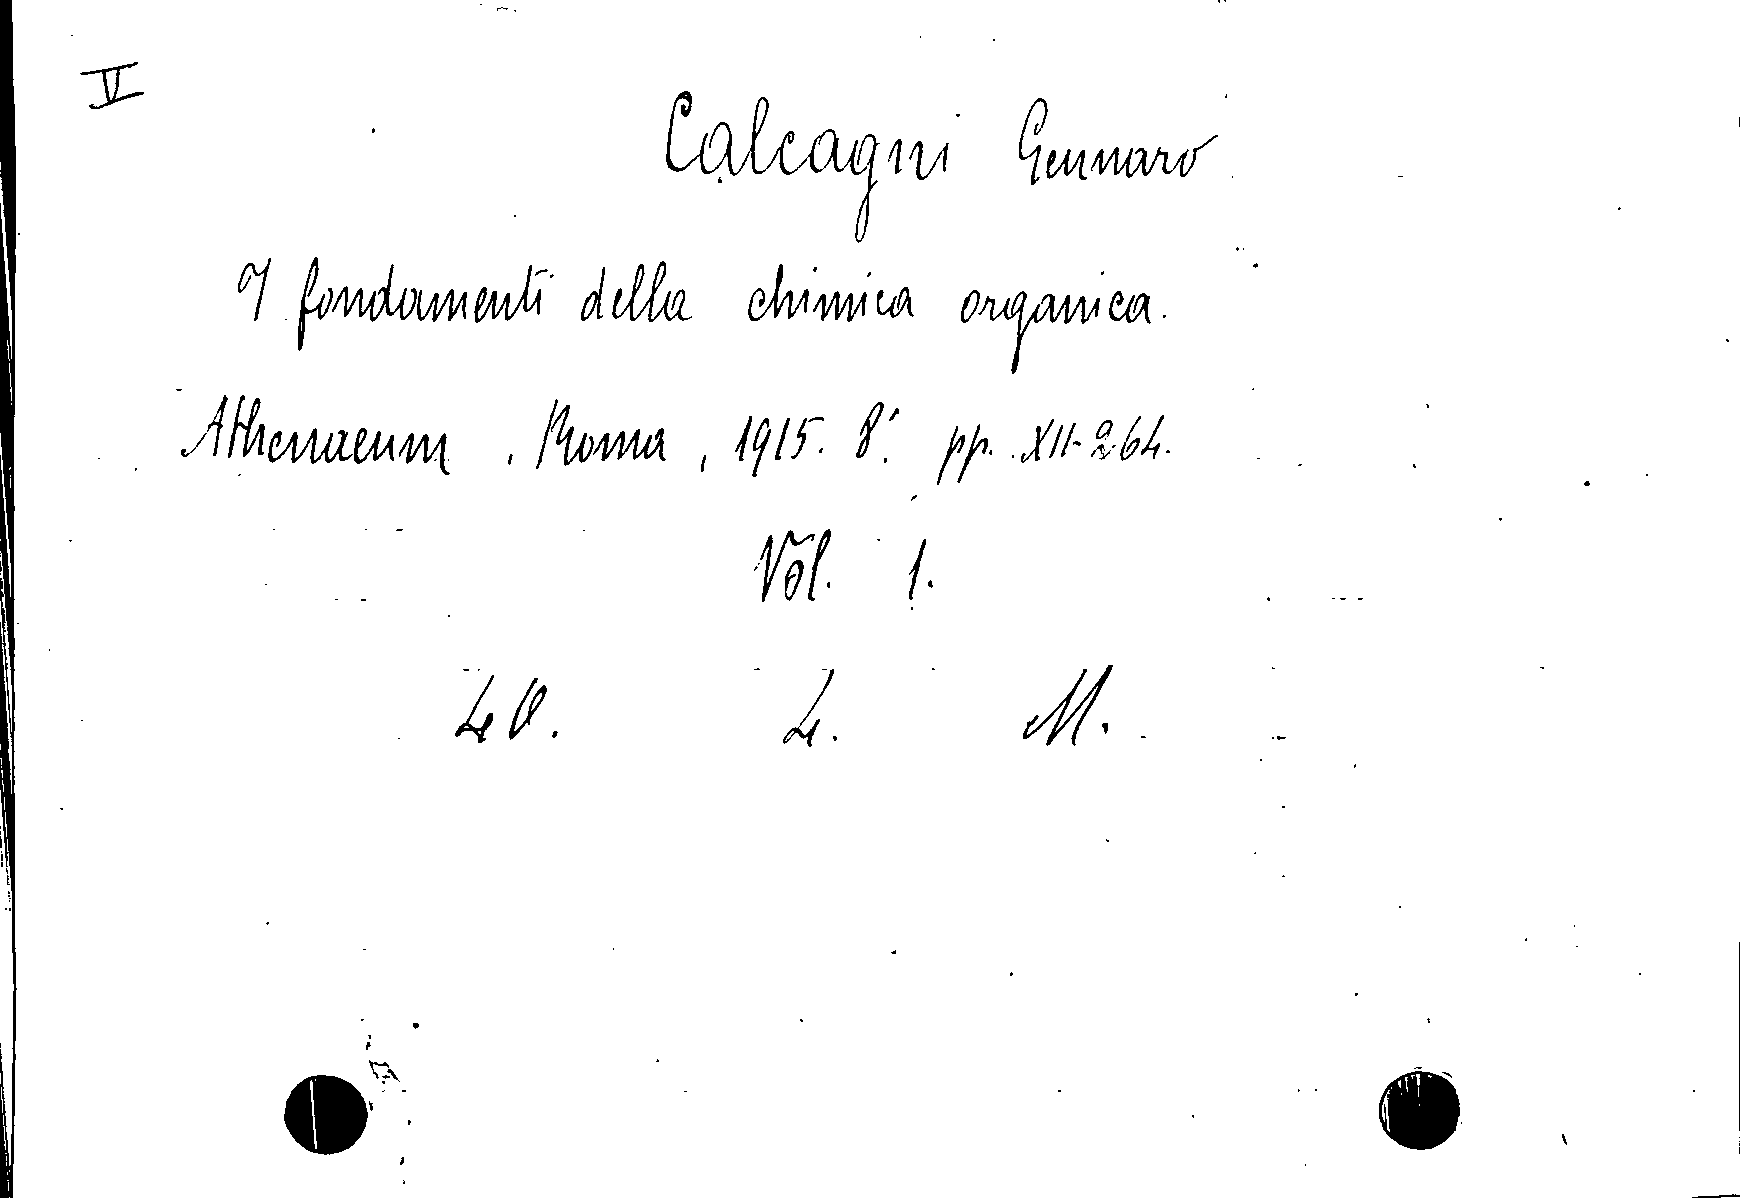 V
Calcagni Gennaro
I fondamenti della chimica organica.
Athenaeum, Roma, 1915. 8º. pp. XII-264.
Vol. 1.
40. 4. M.